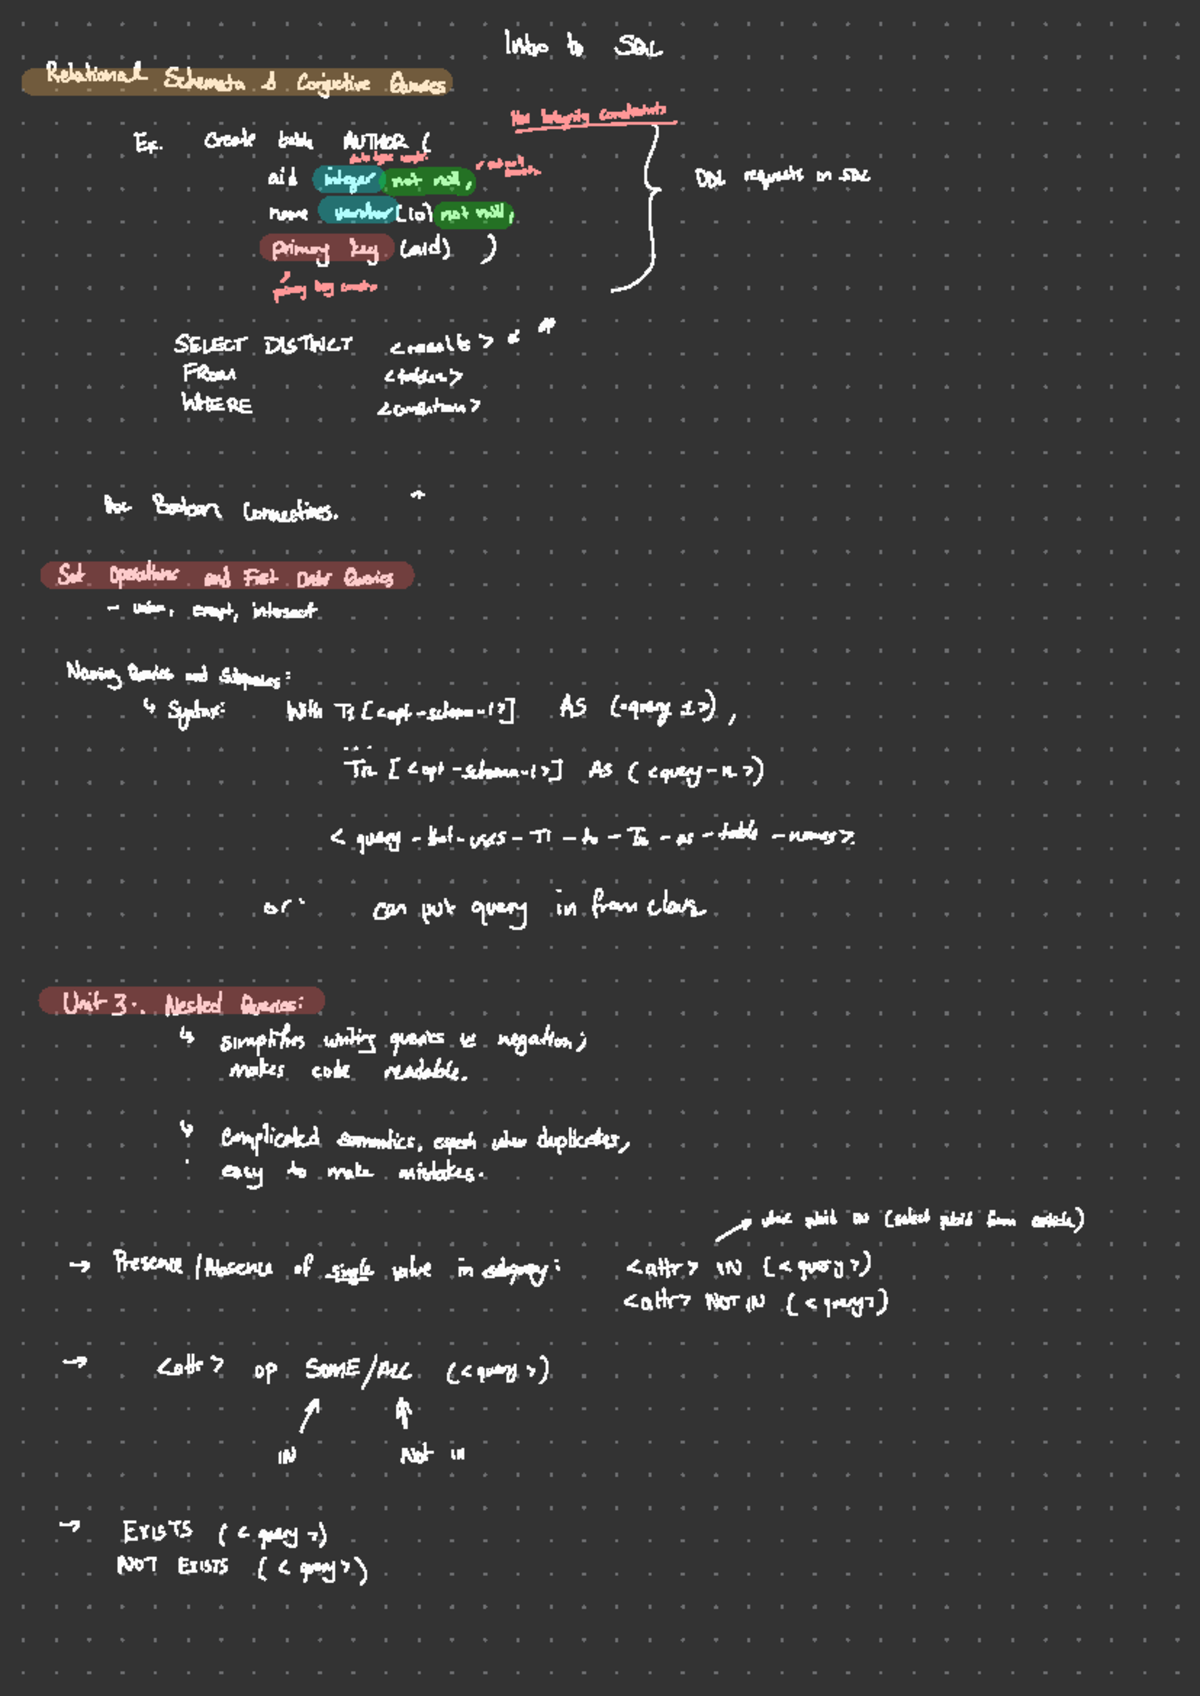 Intro to SQL
Relational Schemata & Conjuctive Queries
Has Integrity constraints
Ex. Create table AUTHOR (
data type
aid integer not null,
name varchar (10) not null,
primary key (aid) )
primary key
DDL requests in SQL
SELECT DISTINCT <results>
FROM <tables>
WHERE <condition>
Boolean Connectives.
Set Operations and First Order Queries
- union, except, intersect
Naming Queries and Subqueries:
↳ Syntax: With T1 [<opt-schema-1>] AS (<query 1>),
...
Tn [<opt-schema-1>] AS (<query-n>)
<query-that-uses-T1-to-Tn-as-table-names>
or: can put query in from claus
Unit 3: Nested Queries:
↳ simplifies writing queries w negation;
makes code readable.
↳ Complicated semantics, espesh when duplicates,
easy to make mistakes.
(select pubid from article)
→ Presence/Absence of single value in subquery: <attr> IN (<query>)
<attr> NOT IN (<query>)
→ <attr> op SOME/ALL (<query>)
IN Not in
→ EXISTS (<query>)
NOT EXISTS (<query>)